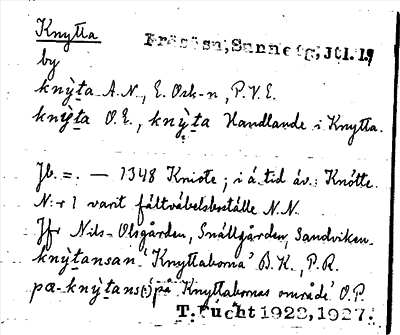 Knytta
Frösön, Sunne tg, Jtl. l.
by
knỳta A.N., E. Osk-n, P.V.E.
knỳta O.E., knỳta Handlande i Knytta.
Jb. =. — 1348 Kniote; i á. tid äv.: Knótte.
N:r 1 varit fältväbelsboställe N.N.
Jfr Nils-Olsgården, Snällgården, Sandviken.
knỳtansan 'Knyttaborna' B.K., P.R.
pæ-knỳtans(:) 'på Knyttabornas område' O.P.
T. Fücht 1923, 1927.